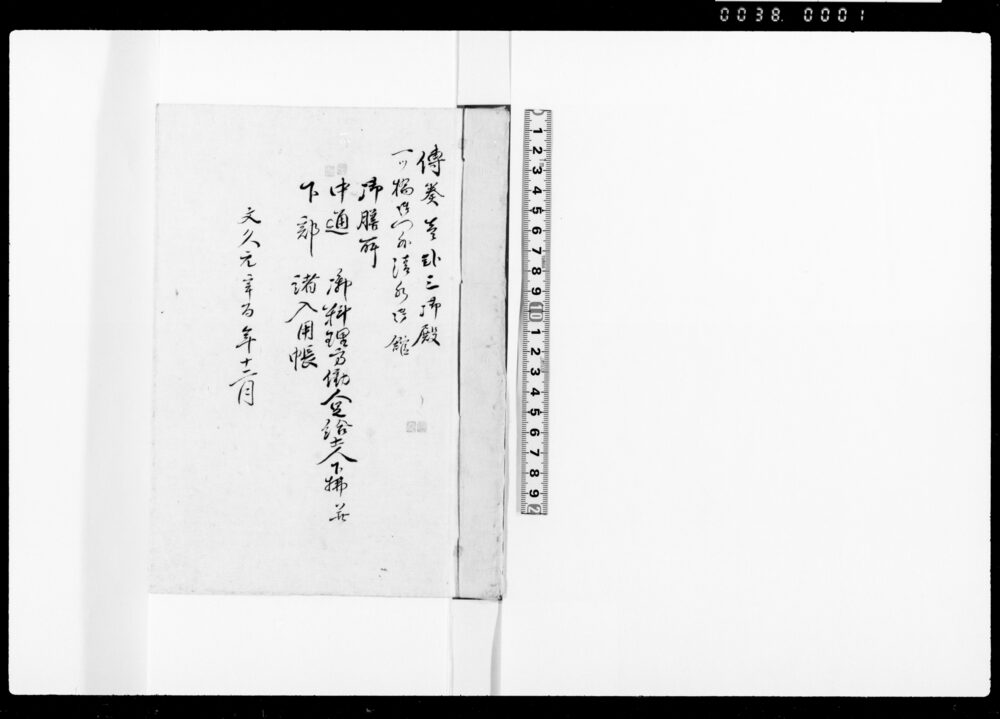 0038. 0001
傳奏 三御殿
一ツ橋御門外清水御館
御膳所
中通 御料理方働 人下 并
下部 諸入用帳
文久元辛酉年十二月
1 2 3 4 5 6 7 8 9 10 1 2 3 4 5 6 7 8 9 2